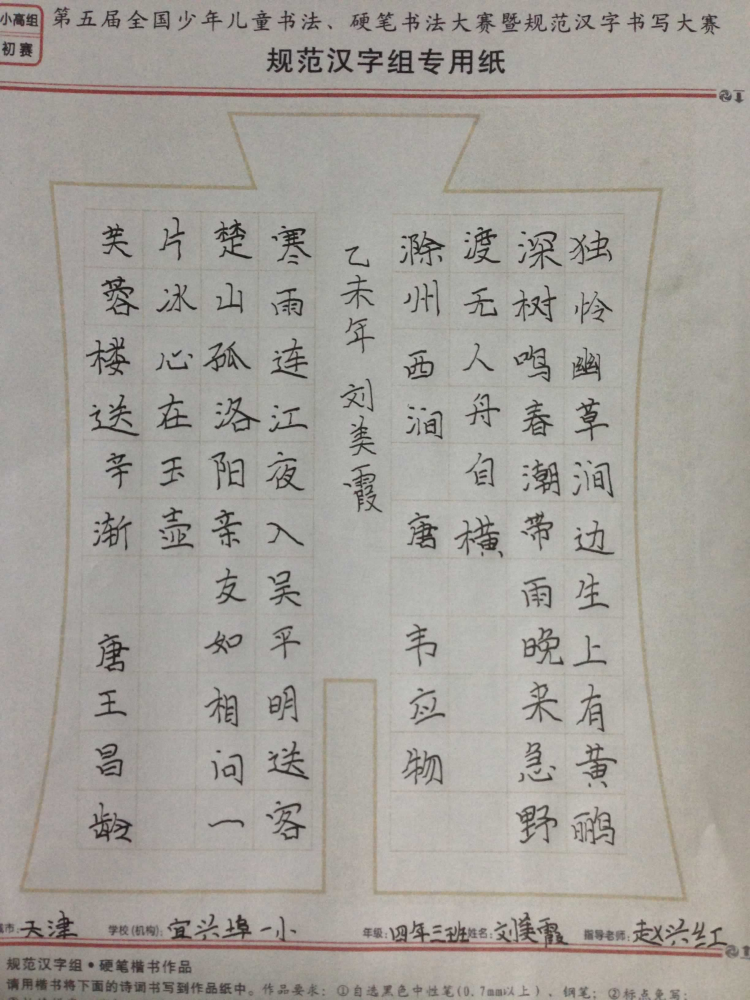 小高组
初赛
第五届全国少年儿童书法、硬笔书法大赛暨规范汉字书写大赛
规范汉字组专用纸
独怜幽草涧边生上有黄鹂
深树鸣春潮带雨晚来急野
渡无人舟自横
滁州西涧 唐 韦应物
乙未年 刘美霞
寒雨连江夜入吴平明送客
楚山孤洛阳亲友如相问一
片冰心在玉壶
芙蓉楼送辛渐 唐王昌龄
市: 天津 学校(机构): 宜兴埠一小 年级: 四年三班 姓名: 刘美霞 指导老师: 赵兴红
规范汉字组·硬笔楷书作品
请用楷书将下面的诗词书写到作品纸中。作品要求：①自选黑色中性笔(0.7mm以上)，钢笔；②标点免写；